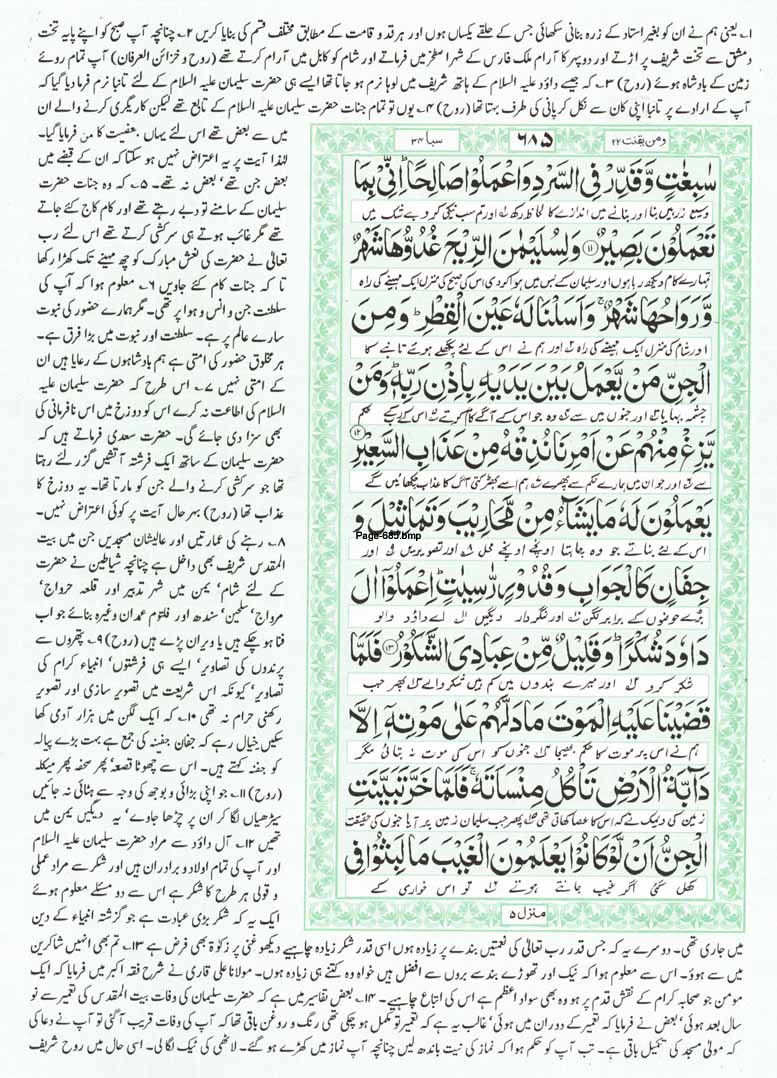 ۱۔ یعنی ہم نے ان کو بغیر استاد کے زرہ بنانی سکھائی جس کے حلقے یکساں ہوں اور ہر قد و قامت کے مطابق مختلف قسم کی بنایا کریں ۲۔ چنانچہ آپ صبح کو اپنے پایہ تخت
دمشق سے تخت شریف پر اڑتے اور دوپہر کا آرام ملک فارس کے شہر اصطخر میں فرماتے اور شام کو کابل میں آرام کرتے تھے (روح و خزائن العرفان) آپ تمام روئے
زمین کے بادشاہ ہوئے (روح) ۳۔ کہ جیسے داؤد علیہ السلام کے ہاتھ شریف میں لوہا نرم ہو جاتا تھا ایسے ہی حضرت سلیمان علیہ السلام کے لئے تانبا نرم فرما دیا گیا کہ
آپ کے ارادے پر تانبا اپنی کان سے نکل کر پانی کی طرف بہتا تھا (روح) ۴۔ یوں تو تمام جنات حضرت سلیمان علیہ السلام کے تابع تھے لیکن کاریگری کرنے والے ان
ومن یقنت ۲۲
۶۸۵
سبا ۳۴
سٰبِغٰتٍ وَّقَدِّرْ فِی السَّرْدِ وَاعْمَلُوْا صَالِحًا ؕ اِنِّیْ بِمَا
وسیع زرہیں بنا اور بنانے میں اندازے کا لحاظ رکھ اور تم سب نیکی کرو بے شک میں
تَعْمَلُوْنَ بَصِیْرٌ ۱۱ وَلِسُلَیْمٰنَ الرِّیْحَ غُدُوُّهَا شَهْرٌ
تمہارے کام دیکھ رہا ہوں اور سلیمان کے بس میں ہوا کر دی اس کی صبح کی منزل ایک مہینے کی راہ
وَّرَوَاحُهَا شَهْرٌ ۚ وَاَسَلْنَا لَهٗ عَیْنَ الْقِطْرِ ؕ وَمِنَ
اور شام کی منزل ایک مہینے کی راہ اور ہم نے اس کے لئے پگھلے ہوئے تانبے کا
الْجِنِّ مَنْ یَّعْمَلُ بَیْنَ یَدَیْهِ بِاِذْنِ رَبِّهٖ ؕ وَمَنْ
چشمہ بہایا اور جنوں میں سے وہ جو اس کے آگے کام کرتے اس کے رب کے حکم
یَّزِغْ مِنْهُمْ عَنْ اَمْرِنَا نُذِقْهُ مِنْ عَذَابِ السَّعِیْرِ ۱۲
سے اور جو ان میں ہمارے حکم سے پھرے ہم اسے بھڑکتی آگ کا عذاب چکھائیں گے
یَعْمَلُوْنَ لَهٗ مَا یَشَآءُ مِنْ مَّحَارِیْبَ وَتَمَاثِیْلَ وَ
Page-685.bmp
اس کے لئے بناتے جو وہ چاہتا اونچے اونچے محل اور تصویریں اور
جِفَانٍ كَالْجَوَابِ وَقُدُوْرٍ رّٰسِیٰتٍ ؕ اِعْمَلُوْۤا اٰلَ
بڑے حوضوں کے برابر لگن اور لنگر دار دیگیں اے داؤد والو
دَاوٗدَ شُكْرًا ؕ وَقَلِیْلٌ مِّنْ عِبَادِیَ الشَّكُوْرُ ۱۳ فَلَمَّا
شکر کرو اور میرے بندوں میں کم ہیں شکر والے پھر جب
قَضَیْنَا عَلَیْهِ الْمَوْتَ مَا دَلَّهُمْ عَلٰی مَوْتِهٖۤ اِلَّا
ہم نے اس پر موت کا حکم بھیجا جنوں کو اس کی موت نہ بتائی مگر
دَآبَّةُ الْاَرْضِ تَاْكُلُ مِنْسَاَتَهٗ ۚ فَلَمَّا خَرَّ تَبَیَّنَتِ
زمین کی دیمک نے کہ اس کا عصا کھاتی تھی پھر جب سلیمان زمین پر آیا جنوں کی حقیقت
الْجِنُّ اَنْ لَّوْ كَانُوْا یَعْلَمُوْنَ الْغَیْبَ مَا لَبِثُوْا فِی
کھل گئی اگر غیب جانتے ہوتے تو اس خواری کے
منزل ۵
میں سے بعض تھے اس لئے یہاں بعضیت کا من فرمایا گیا۔
لہٰذا آیت پر یہ اعتراض نہیں ہو سکتا کہ ان کے قبضے میں
بعض جن تھے' بعض نہ تھے۔ ۵۔ کہ وہ جنات حضرت
سلیمان کے سامنے تو دبے رہتے تھے اور کام کاج کئے جاتے
تھے مگر غائب ہوتے ہی سرکشی کرتے تھے اس لئے رب
تعالیٰ نے حضرت کی نعش مبارک کو چھ مہینے تک کھڑا رکھا
تا کہ جنات کام کئے جاویں ۶۔ معلوم ہوا کہ آپ کی
سلطنت جن و انس و ہوا پر تھی۔ مگر ہمارے حضور کی نبوت
سارے عالم پر ہے۔ سلطنت اور نبوت میں بڑا فرق ہے۔
ہر مخلوق حضور کی امتی ہے ہم بادشاہوں کے رعایا ہیں ان
کے امتی نہیں ۷۔ اس طرح کہ حضرت سلیمان علیہ
السلام کی اطاعت نہ کرے اس کو دوزخ میں اس نافرمانی کی
بھی سزا دی جائے گی۔ حضرت سعدی فرماتے ہیں کہ
حضرت سلیمان کے ساتھ ایک فرشتہ آتشیں گرز لئے رہتا
تھا جو سرکشی کرنے والے جن کو مارتا تھا۔ یہ دوزخ کا
عذاب تھا (روح) بہر حال آیت پر کوئی اعتراض نہیں۔
۸۔ رہنے کی عمارتیں اور عالیشان مسجدیں جن میں بیت
المقدس شریف بھی داخل ہے چنانچہ شیاطین نے حضرت
کے لئے شام' یمن میں شہر تدبیر اور قلعہ حرواج'
مرواج' سلحین' سندھ اور فلثوم عمدان وغیرہ بنائے جو اب
فنا ہو چکے ہیں یا ویران پڑے ہیں (روح) ۹۔ پتھروں سے
پرندوں کی تصاویر' ایسے ہی فرشتوں' انبیاء کرام کی
تصاویر' کیونکہ اس شریعت میں تصویر سازی اور تصویر
رکھنی حرام نہ تھی ۱۰۔ کہ ایک لگن میں ہزار آدمی کھا
سکیں خیال رہے کہ جفان جفنہ کی جمع ہے بہت بڑے پیالہ
کو جفنہ کہتے ہیں۔ اس سے چھوٹا قصعہ' پھر صحفہ پھر میکلہ
(روح) ۱۱۔ جو اپنی بڑائی و بوجھ کی وجہ سے ہٹائی نہ جائیں
سیڑھیاں لگا کر ان پر چڑھا جاوے' یہ دیگیں یمن میں
تھیں ۱۲۔ آل داؤد سے مراد حضرت سلیمان علیہ السلام
اور آپ کی تمام اولاد و برادران ہیں اور شکر سے مراد عملی
و قولی ہر طرح کا شکر ہے اس سے دو مسئلے معلوم ہوئے
ایک یہ کہ شکر بڑی عبادت ہے جو گزشتہ انبیاء کے دین
میں جاری تھی۔ دوسرے یہ کہ جس قدر رب تعالیٰ کی نعمتیں بندے پر زیادہ ہوں اسی قدر شکر زیادہ چاہیے دیکھو غنی پر زکوٰۃ بھی فرض ہے ۱۳۔ تم بھی انہیں شاکرین
میں سے ہوؤ۔ اس سے معلوم ہوا کہ نیک اور تھوڑے بندے بروں سے افضل ہیں خواہ وہ کتنے ہی زیادہ ہوں۔ مولانا علی قاری نے شرح فقہ اکبر میں فرمایا کہ ایک
مومن جو صحابہ کرام کے نقش قدم پر ہو وہ بھی سواد اعظم ہے اس کی اتباع چاہیے۔ ۱۴۔ بعض تفاسیر میں ہے کہ حضرت سلیمان کی وفات بیت المقدس کی تعمیر سے نو
سال بعد ہوئی' بعض نے فرمایا کہ تعمیر کے دوران میں ہوئی' غالب یہ ہے کہ تعمیر تو مکمل ہو چکی تھی رنگ و روغن باقی تھا کہ آپ کی وفات قریب آ گئی تو آپ نے دعا کی
کہ مولیٰ مسجد کی تکمیل باقی ہے۔ تب آپ کو حکم ہوا کہ نماز کی نیت باندھ لیں چنانچہ آپ نماز میں کھڑے ہو گئے۔ لاٹھی کی ٹیک لگا لی۔ اسی حال میں روح شریف